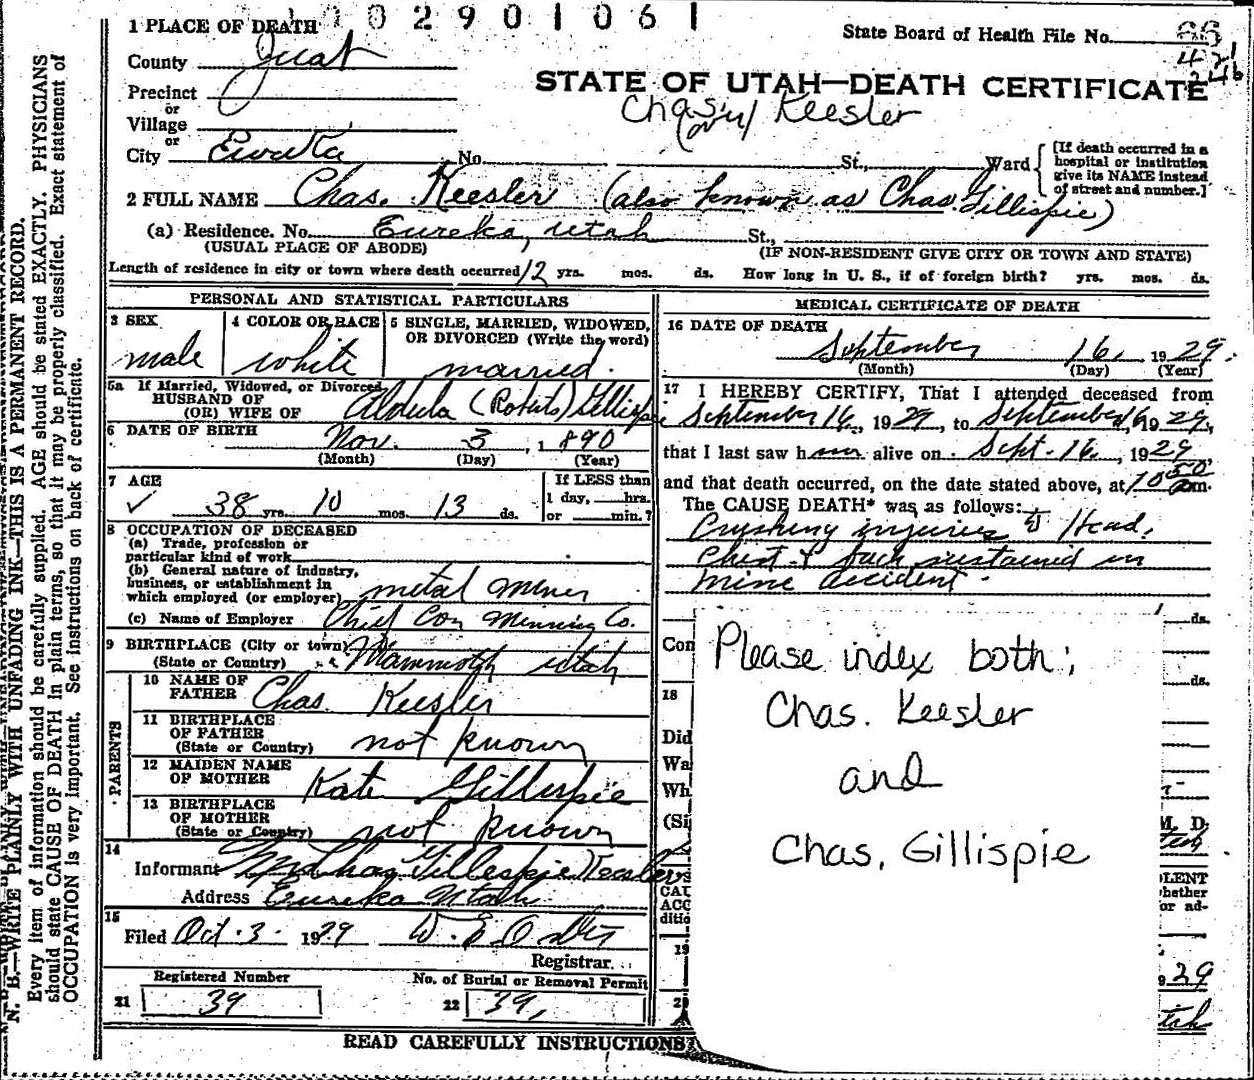 0 0 2 9 0 1 0 6 1
State Board of Health File No. 66
421
246
STATE OF UTAH—DEATH CERTIFICATE
Chas. Keesler
(over)
1 PLACE OF DEATH
County Juab
Precinct
or
Village
or
City Eureka No. St., Ward
[If death occurred in a
hospital or institution
give its NAME instead
of street and number.]
2 FULL NAME Chas. Keesler (also known as Chas Gillispie)
(a) Residence. No. Eureka, Utah St.,
(USUAL PLACE OF ABODE) (IF NON-RESIDENT GIVE CITY OR TOWN AND STATE)
Length of residence in city or town where death occurred 12 yrs. mos. ds. How long in U. S., if of foreign birth? yrs. mos. ds.
PERSONAL AND STATISTICAL PARTICULARS
3 SEX
male
4 COLOR OR RACE
white
5 SINGLE, MARRIED, WIDOWED,
OR DIVORCED (Write the word)
married.
5a If Married, Widowed, or Divorced
HUSBAND OF
(OR) WIFE OF Aldula (Roberts) Gillispie
6 DATE OF BIRTH Nov. 3, 1890
(Month) (Day) (Year)
7 AGE
✓ 38 yrs. 10 mos. 13 ds.
If LESS than
1 day, hrs.
or min.?
8 OCCUPATION OF DECEASED
(a) Trade, profession or
particular kind of work
(b) General nature of industry,
business, or establishment in
which employed (or employer) metal miner
(c) Name of Employer Chief Con Minning Co.
9 BIRTHPLACE (City or town)
(State or Country) Mammoth Utah
PARENTS
10 NAME OF
FATHER Chas. Keesler
11 BIRTHPLACE
OF FATHER
(State or Country) not known
12 MAIDEN NAME
OF MOTHER Kate Gillispie
13 BIRTHPLACE
OF MOTHER
(State or Country) not known
14
Informant Mrs Chas Gillespie Keesler
Address Eureka Utah
15
Filed Oct. 3 1929
Registrar.
Registered Number
21 39
No. of Burial or Removal Permit
22 39,
READ CAREFULLY INSTRUCTIONS
MEDICAL CERTIFICATE OF DEATH
16 DATE OF DEATH
September 16, 1929.
(Month) (Day) (Year)
17 I HEREBY CERTIFY, That I attended deceased from
September 16, 1929, to September 16 1929,
that I last saw him alive on Sept. 16, 1929
and that death occurred, on the date stated above, at 10 50 m.
The CAUSE DEATH* was as follows:
Crushing injuries to Head,
Chest & back sustained in
mine accident.
ds.
Con
ds.
18
Did
Wa
Wh
(Si
M. D.
CAT
ACC
ditio
OLENT
whether
or ad-
19
9 29
20
Utah
Please index both;
Chas. Keesler
and
Chas. Gillispie
N. B.—WRITE PLAINLY WITH UNFADING INK—THIS IS A PERMANENT RECORD.
Every item of information should be carefully supplied. AGE should be stated EXACTLY. PHYSICIANS
should state CAUSE OF DEATH in plain terms, so that it may be properly classified. Exact statement of
OCCUPATION is very important. See instructions on back of certificate.